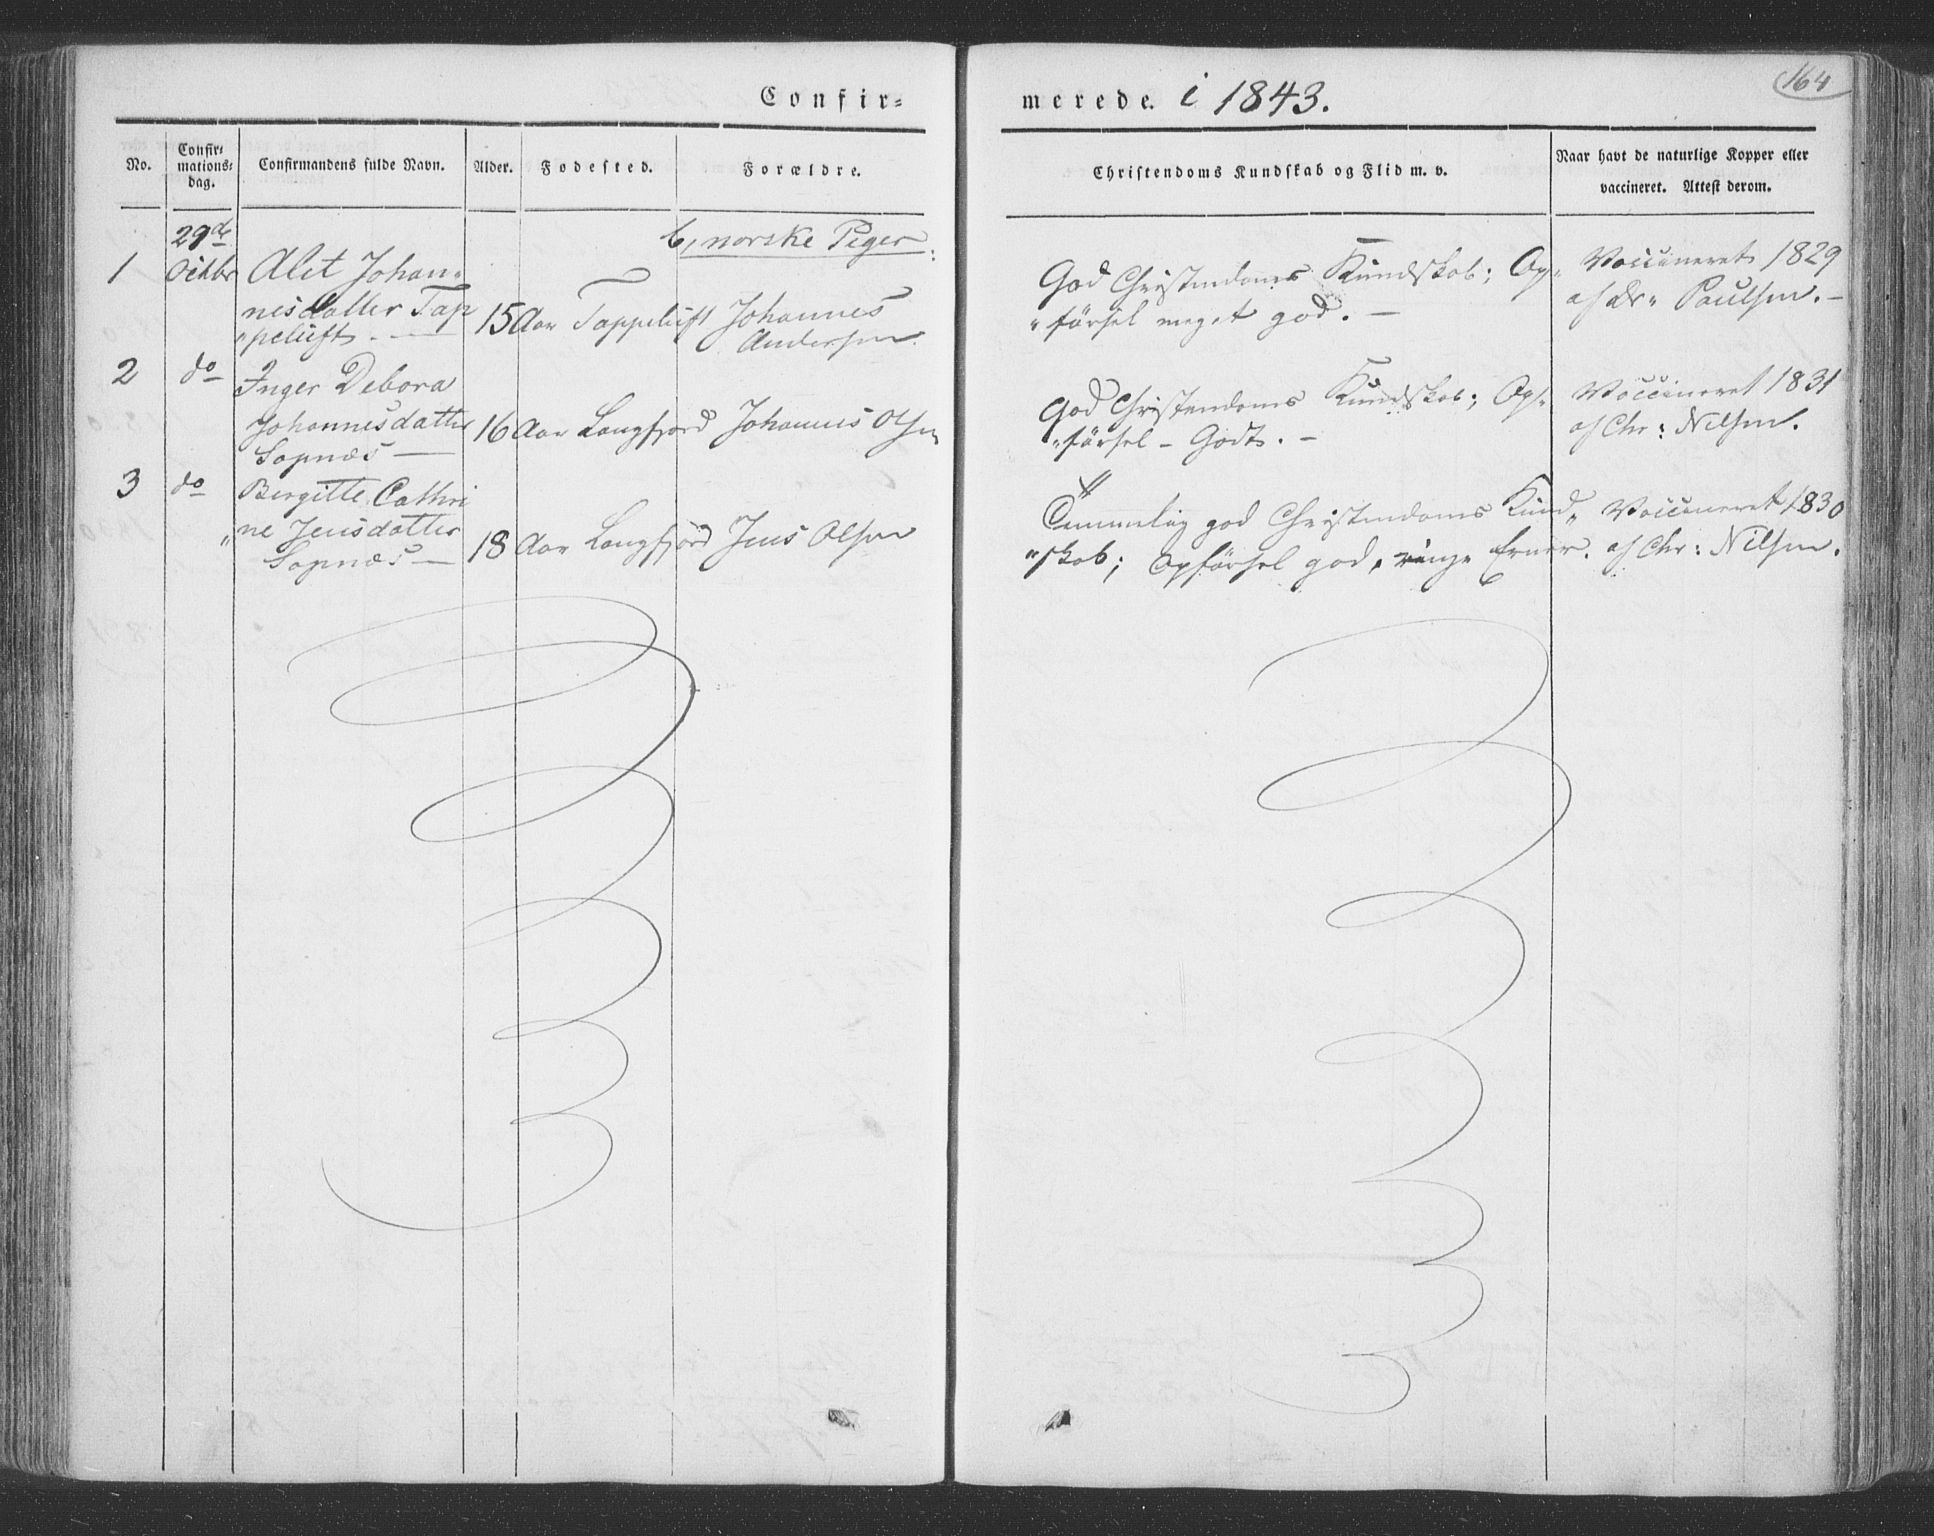 164
Confir=
merede. i 1843.
No.
Confir= mations= dag.
Confirmandens fulde Navn.
Alder.
Fødested.
Forældre.
Christendoms Kundskab og Flid m. v.
Naar havt de naturlige Kopper eller
vaccineret. Attest derom.
b, norske Piger.
29de
1 Octbr Alet Johan=
nesdatter Tap
"peluft. — 15 Aar Tappeluft Johannes
Andersen.
God Christendoms Kundskab; Op=
"førsel meget god. —
Vaccineret 1829
af Dr. Paulsen. —
2 do Inger Debora
Johannesdatter 16 Aar Langfjord Johannes Olsen
Sopnæs —
God Christendoms Kundskab; Op=
"førsel – Godt. –
Vaccineret 1831
af Chr: Nilsen.
3 do Bergitte Cathri
"ne Jensdatter
Sopnæs — 18 Aar Langfjord Jens Olsen
Temmelig god Christendoms Kund=
"skab; Opførsel god, ringe Evner.
Vaccineret 1830
af Chr: Nilsen.